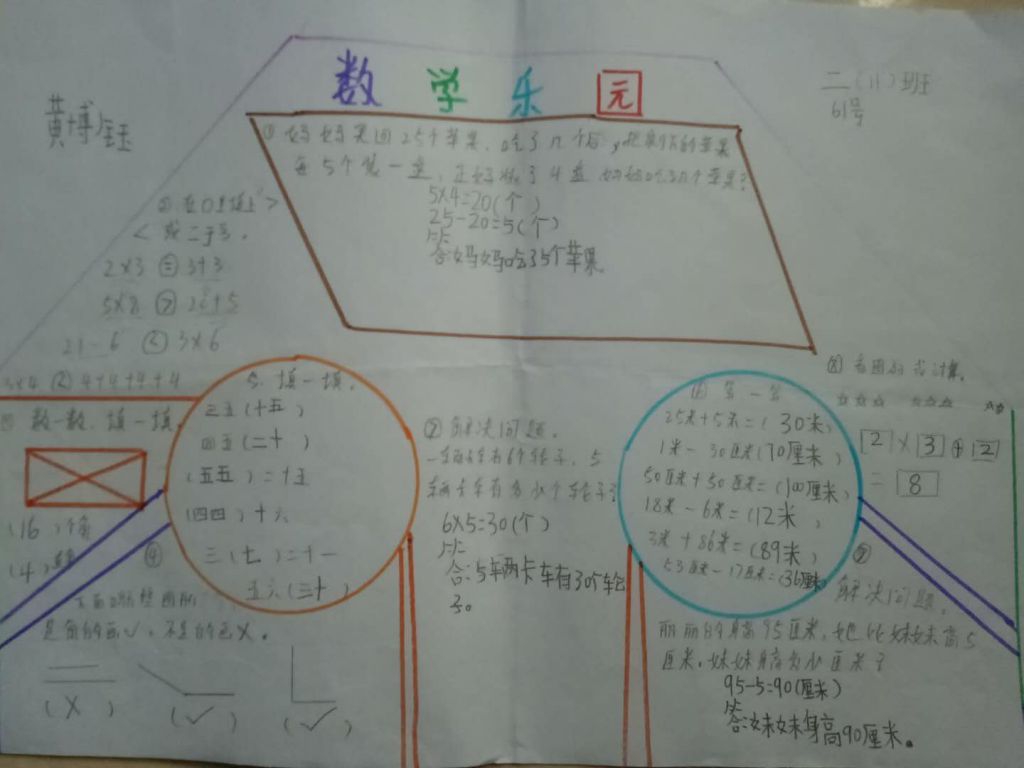 数学乐园
黄博钰
二(11)班
61号
①妈妈买回25个苹果,吃了几个后,把剩下的苹果
每5个装一盘,正好装了4盘 妈妈吃了几个苹果?
5×4=20(个)
25-20=5(个)
答:妈妈吃了5个苹果
②在○里填上">
<或二于号。
2×3 = 3+3
5×8 > 20+5
21-6 < 3×6
3×4 < 4+4+4+4
四 数一数,填一填,
(16)个角
(4)
④
是角的画√,不是的画X。
(X)
(√)
(√)
填一填。
三五(十五)
四五(二十)
(五五)=十五
(四四)十六
三(七)=十一
五六(三十)
⑦解决问题。
一辆卡车有6个轮子,5
辆卡车有多少个轮子?
6×5=30(个)
答:5车两卡车有30个轮
子。
算一算
25米+5米=(30米)
1米-30厘米(70厘米)
50厘米+50厘米=(100厘米)
18米-6米=(12米)
3米+86米=(89米)
53厘米-17厘米=(36厘米)
⑧看图列式计算。
☆☆☆ ☆☆☆ ☆☆
2×3+2
=8
⑨
解决问题。
丽丽的身高95厘米,她比妹妹高5
厘米,妹妹身高多少厘米?
95-5=90(厘米)
答:妹妹身高90厘米。